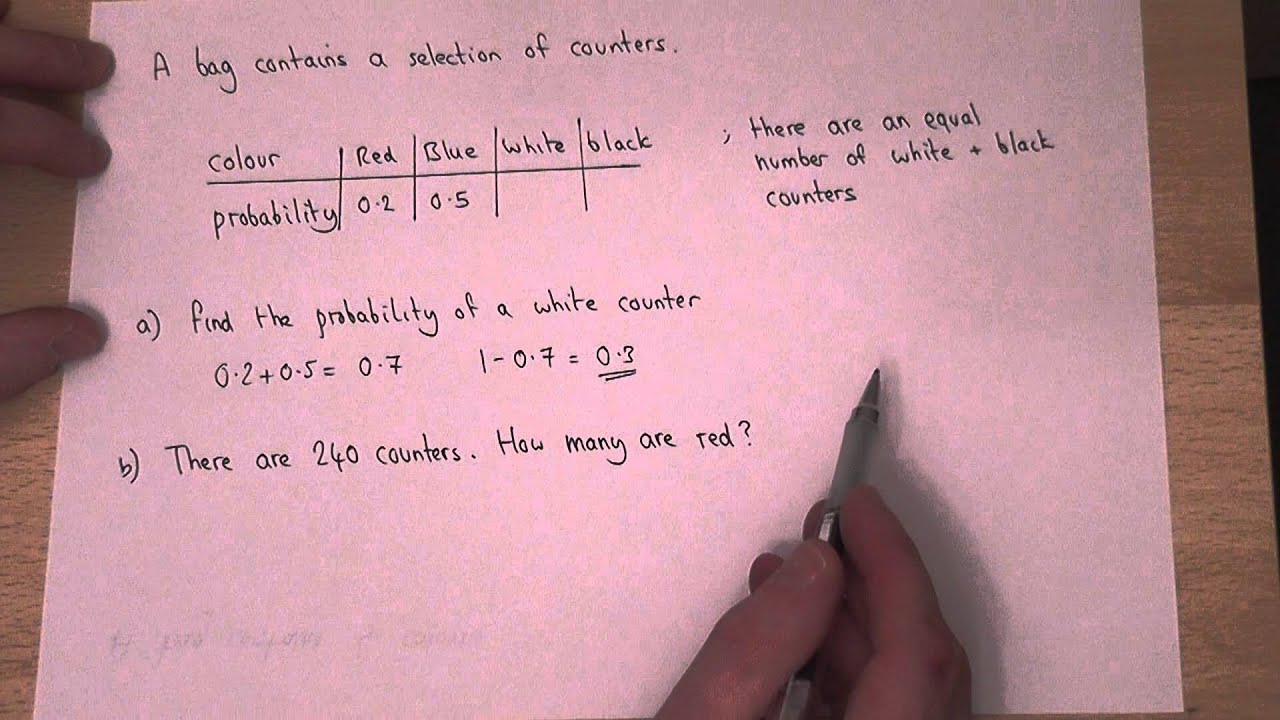 A bag contains a selection of counters.
colour Red Blue white black
probability 0.2 0.5
; there are an equal
number of white + black
counters
a) find the probability of a white counter
0.2+0.5= 0.7 1-0.7 = 0.3
b) There are 240 counters. How many are red?